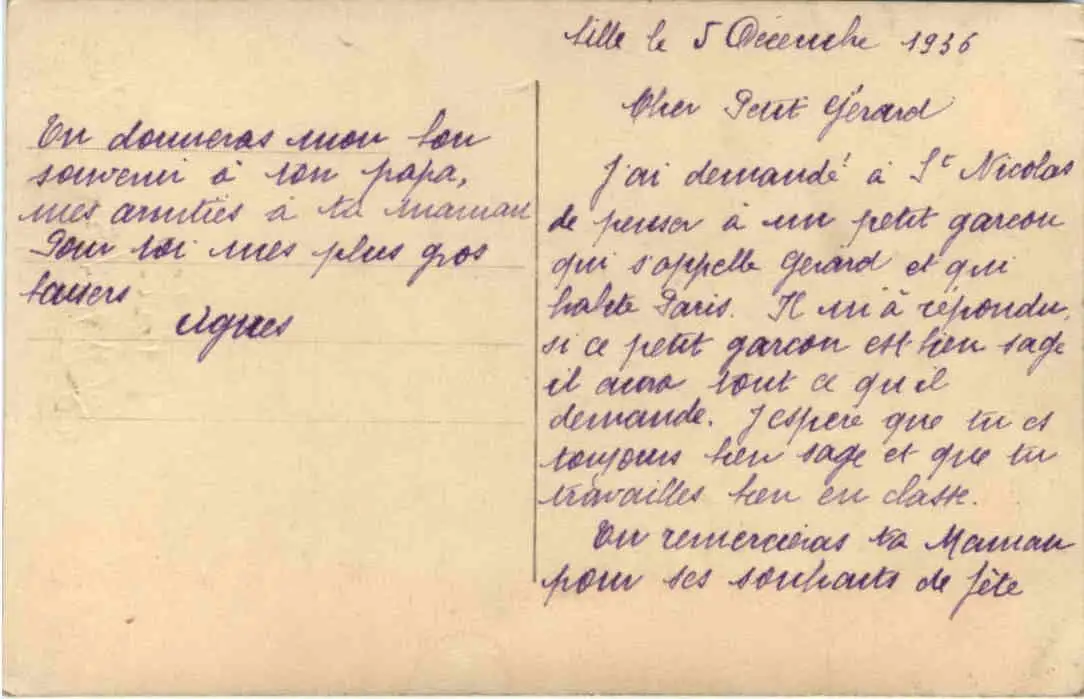 Lille le 5 Décembre 1936
Cher Petit Gérard
J'ai demandé à St Nicolas
de penser à un petit garcon
qui s'appelle Gerard et qui
habite Paris. Il m'à répondu,
si ce petit garcon est bien sage
il aura tout ce qu'il
demande. J'espère que tu es
toujours bien sage et que tu
travailles bien en classe.
Tu remercieras ta Maman
pour ses souhaits de fête
Tu donneras mon bon
souvenir à ton papa,
mes amitiés à ta maman
Pour toi mes plus gros
baisers
Agnes